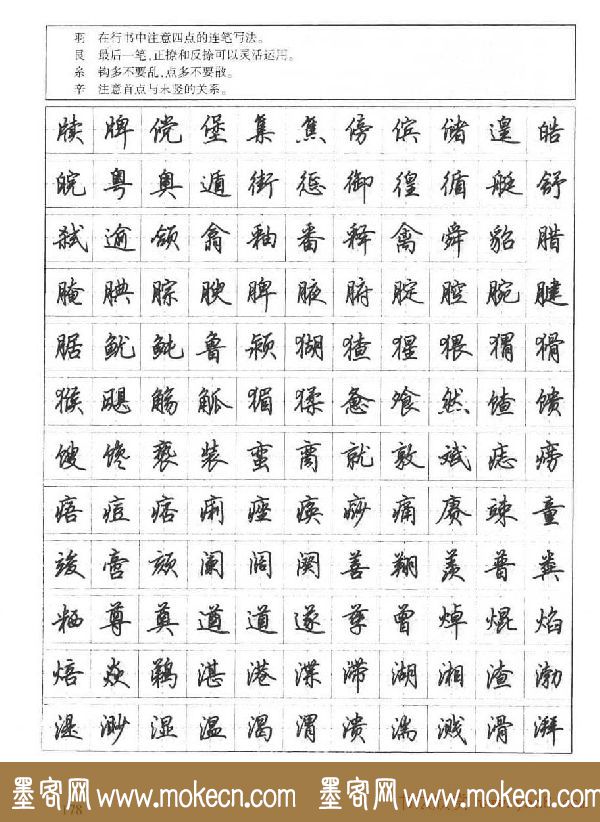 羽 在行书中注意四点的连笔写法。
艮 最后一笔,正捺和反捺可以灵活运用。
糸 钩多不要乱,点多不要散。
辛 注意首点与末竖的关系。
牍 牌 傥 堡 集 焦 傍 傧 储 遑 皓
皖 粤 奥 遁 街 惩 御 徨 循 艇 舒
弑 逾 颌 翕 釉 番 释 禽 舜 貂 腊
腌 腆 腙 腴 脾 腋 腑 腚 腔 腕 腱
腒 鱿 鲀 鲁 颍 猢 猹 猩 猥 猬 猾
猴 飓 觞 觚 猸 猱 惫 飧 然 馇 馈
馊 馋 亵 装 蛮 脔 就 敦 斌 痣 痨
痦 痘 痞 痢 痤 痪 痧 痛 赓 竦 童
竣 啻 颏 阑 阔 阕 善 翔 羡 普 粪
粞 尊 奠 遒 道 遂 孳 曾 焯 焜 焰
焙 焱 鹈 湛 港 渫 滞 湖 湘 渣 渤
湮 渺 湿 温 渴 渭 溃 湍 溅 滑 湃
墨客网 www.mokecn.com 墨客网 www.mokecn.com
178